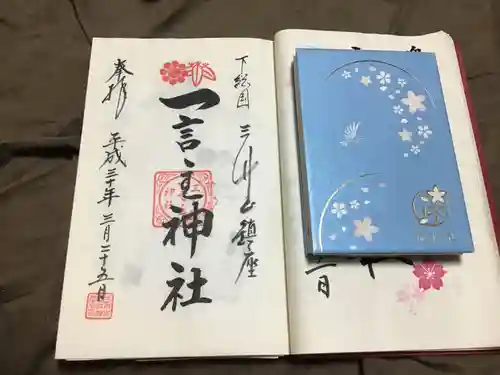 下総国 三竹山鎮座
一言主神社
奉拝
平成三十年 三月二十五日